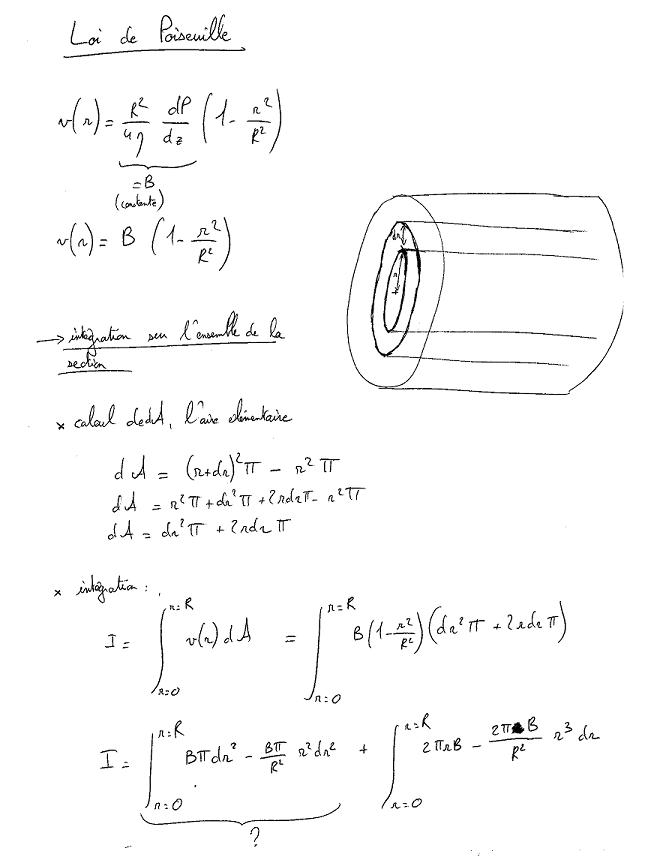 Loi de Poiseuille
v(r) = R²/4η dP/dz (1 - r²/R²)
= B
(constante)
v(r) = B (1 - r²/R²)
dr
r
→ intégration sur l'ensemble de la
section
× calcul de dA, l'aire élémentaire
dA = (r+dr)²π - r²π
dA = r²π + dr²π + 2rdrπ - r²π
dA = dr²π + 2rdrπ
× intégration :
I = ∫_{r=0}^{r=R} v(r) dA = ∫_{r=0}^{r=R} B(1 - r²/R²)(dr²π + 2rdrπ)
I = ∫_{r=0}^{r=R} Bπdr² - Bπ/R² r²dr² + ∫_{r=0}^{r=R} 2πrB - 2πB/R² r³ dr
?